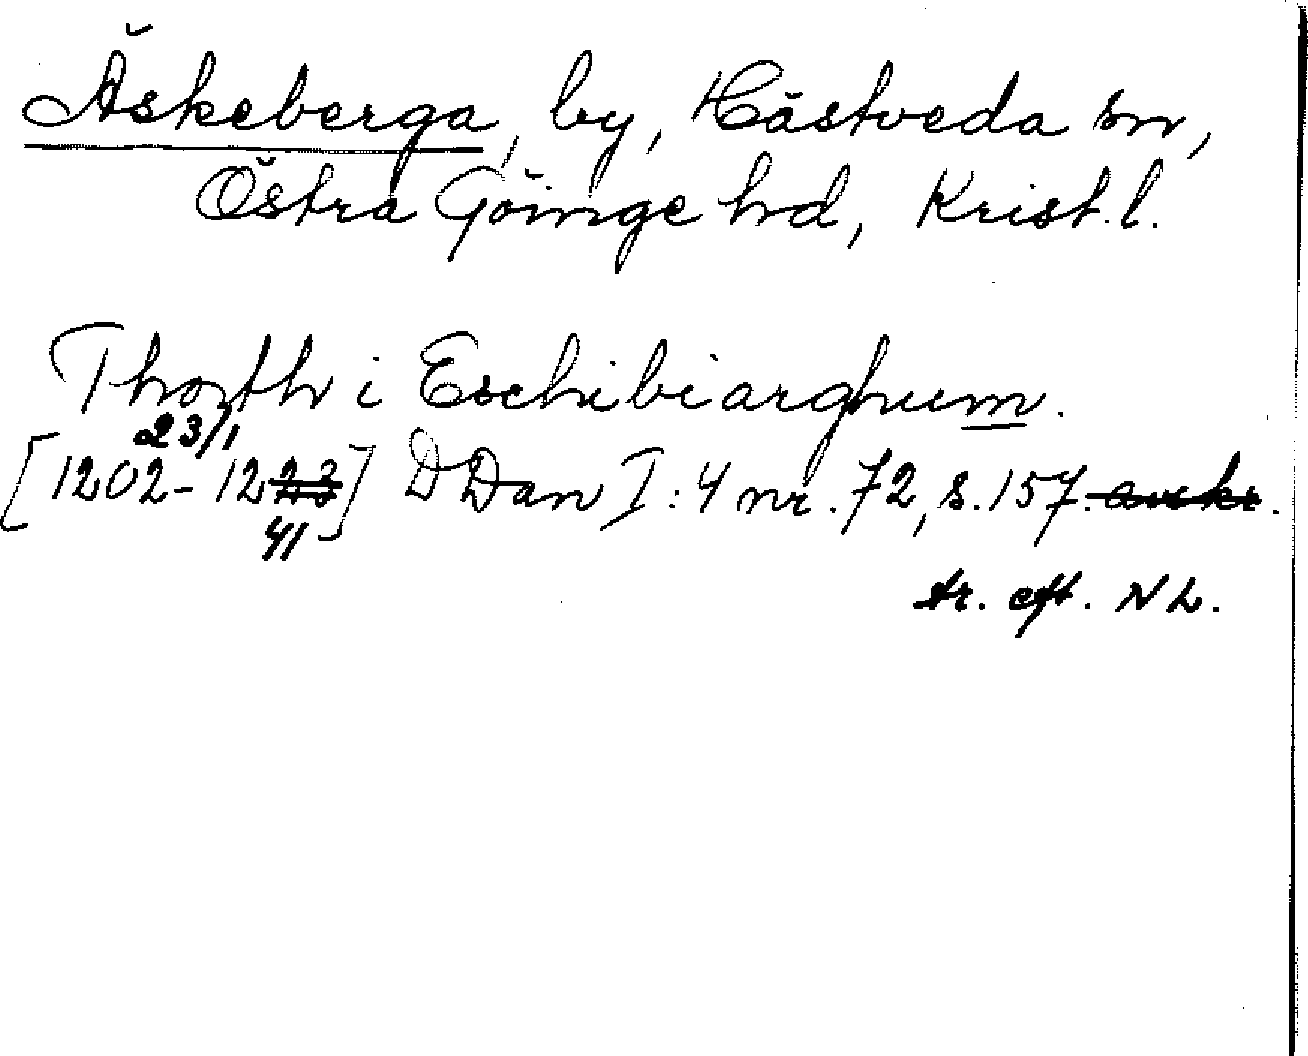 Äskeberga, by, Hästveda sn,
Östra Göinge hd, Krist. l.
Thorth i Eschibiarghum.
23/1
[1202-1223] DDan I:4 nr. 72, s. 157. avskr.
41
tr. eft. NL.